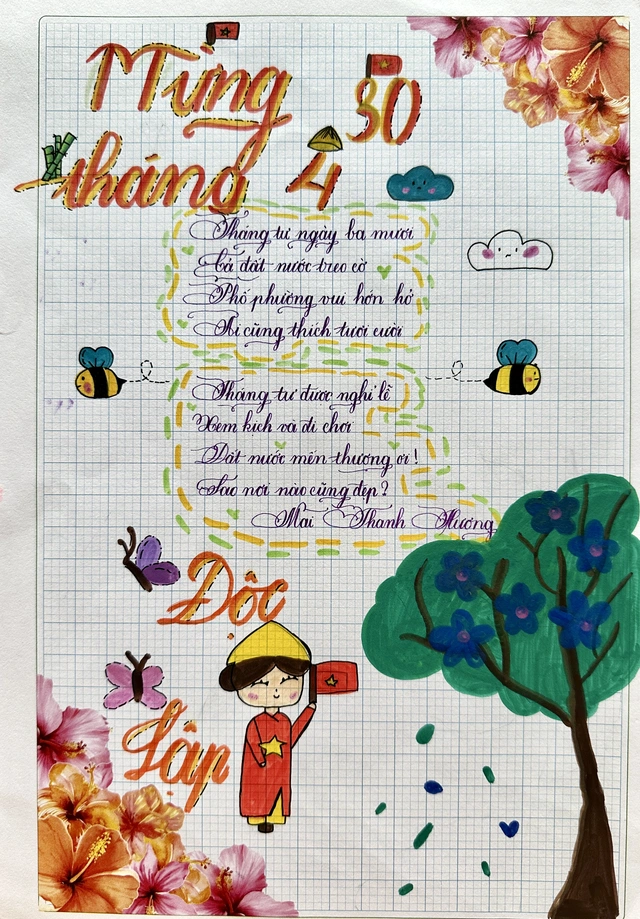 Mừng 30
tháng 4
Tháng tư ngày ba mươi
Cả đất nước treo cờ
Phố phường vui hớn hở
Ai cũng thích tươi cười
Tháng tư được nghỉ lễ
Xem kịch và đi chơi
Đất nước mến thương ơi!
Sao nơi nào cũng đẹp?
Mai Thanh Hương
Độc
Lập